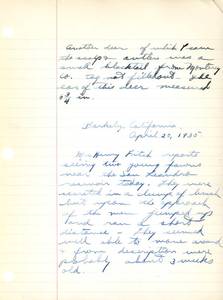 Another deer of which I saw
the scalp & antlers was a
small blacktail from Monterey
Co. tag not filled out. The
ears of this deer measured
in.
Berkeley California
April 20, 1935
McHenry Fitch reports
seeing two young fawns
near the San Leandro
reservoir today. They were
in a clump of brush
but upon the approach
of the men jumped up
and ran a short
distance - They seemed
well able to move around
& from description were
probably about 3 weeks
old.